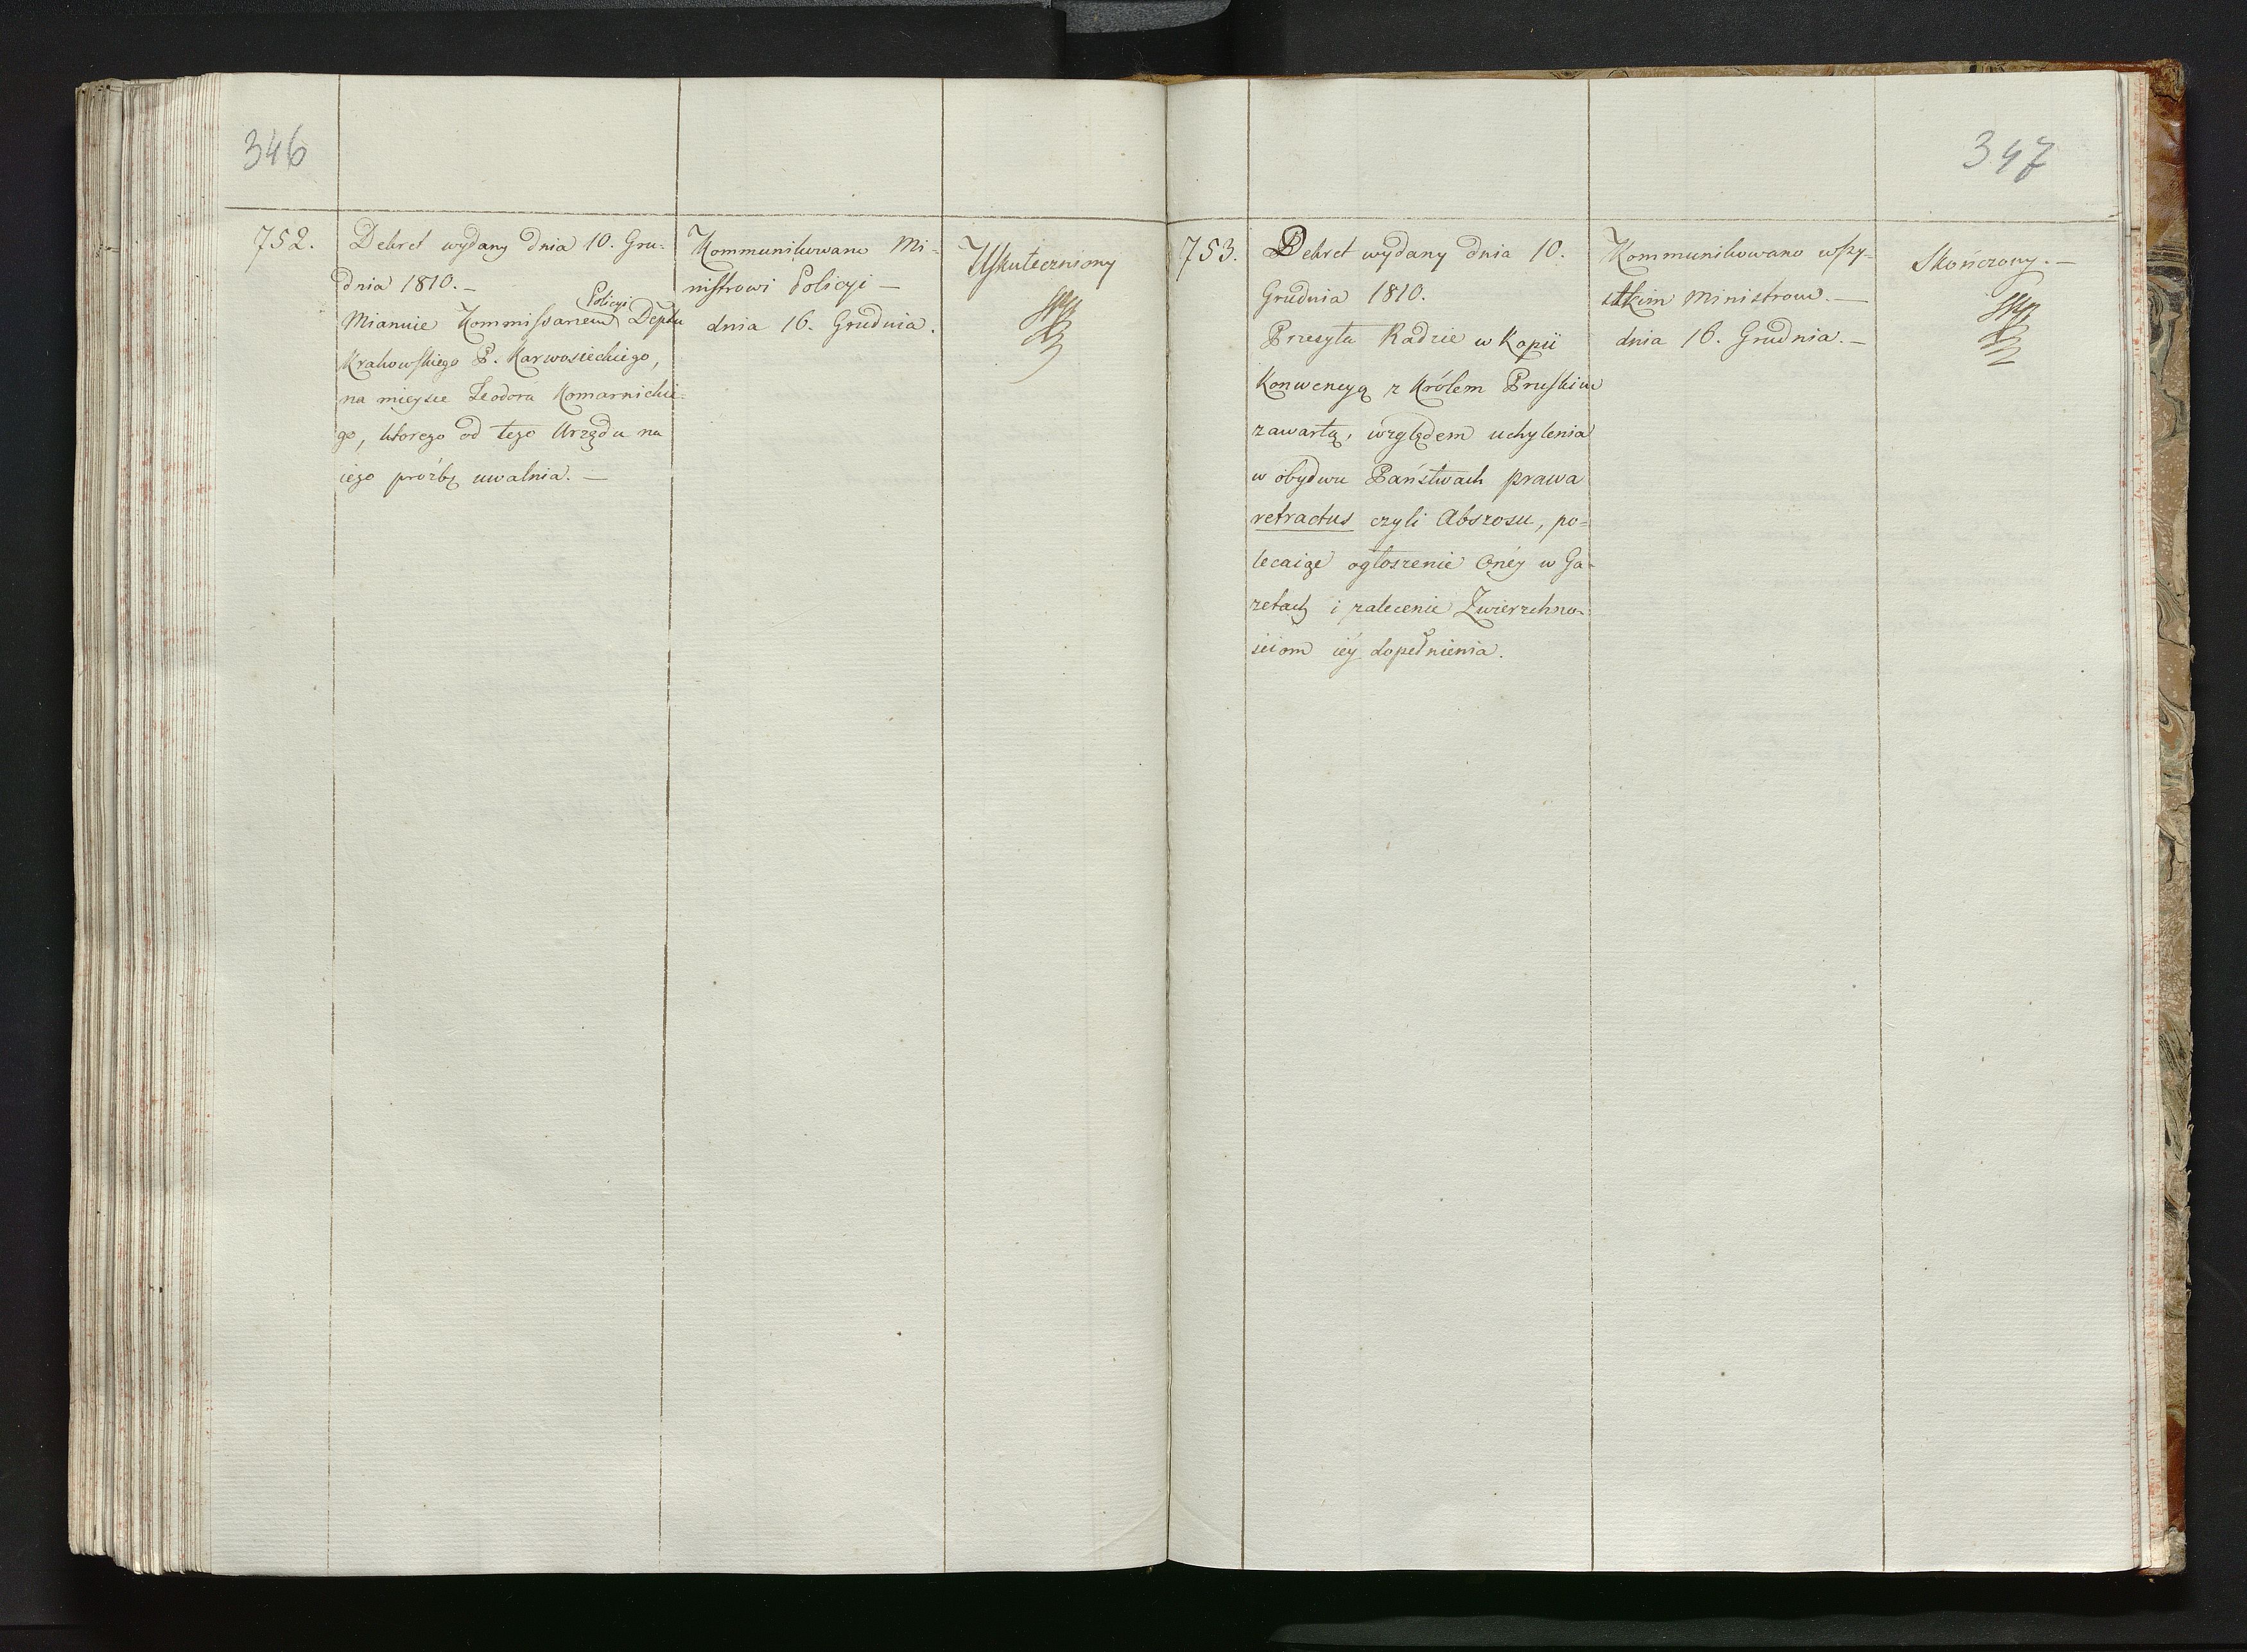 346
752.
Dekret wydany dnia 10. Gru-
dnia 1810. —
Policyi
Mianuie Kommissarzem Deptu
Krakowskiego P. Karwosieckiego,
na mieysce Teodora Komarnickie-
go, którego od tego Urzędu na
iego proźbę uwalnia. —
Kommunikowano Mi-
nistrowi Policyi —
dnia 16. Grudnia.
Uskuteczniony
347
753.
Dekret wydany dnia 10.
Grudnia 1810.
Przesyła Radzie w Kopii
Konwencyą z Królem Pruskim
zawartą, względem uchylenia
w obydwu Państwach prawa
retractus czyli Abszosu, po-
lecaiąc ogłoszenie Onéy w Ga-
zetach i zalecenie Zwierzchno-
ściom iéy dopełnienia.
Kommunikowano wszy-
stkim Ministrom. —
dnia 16. Grudnia. —
Skończony. —